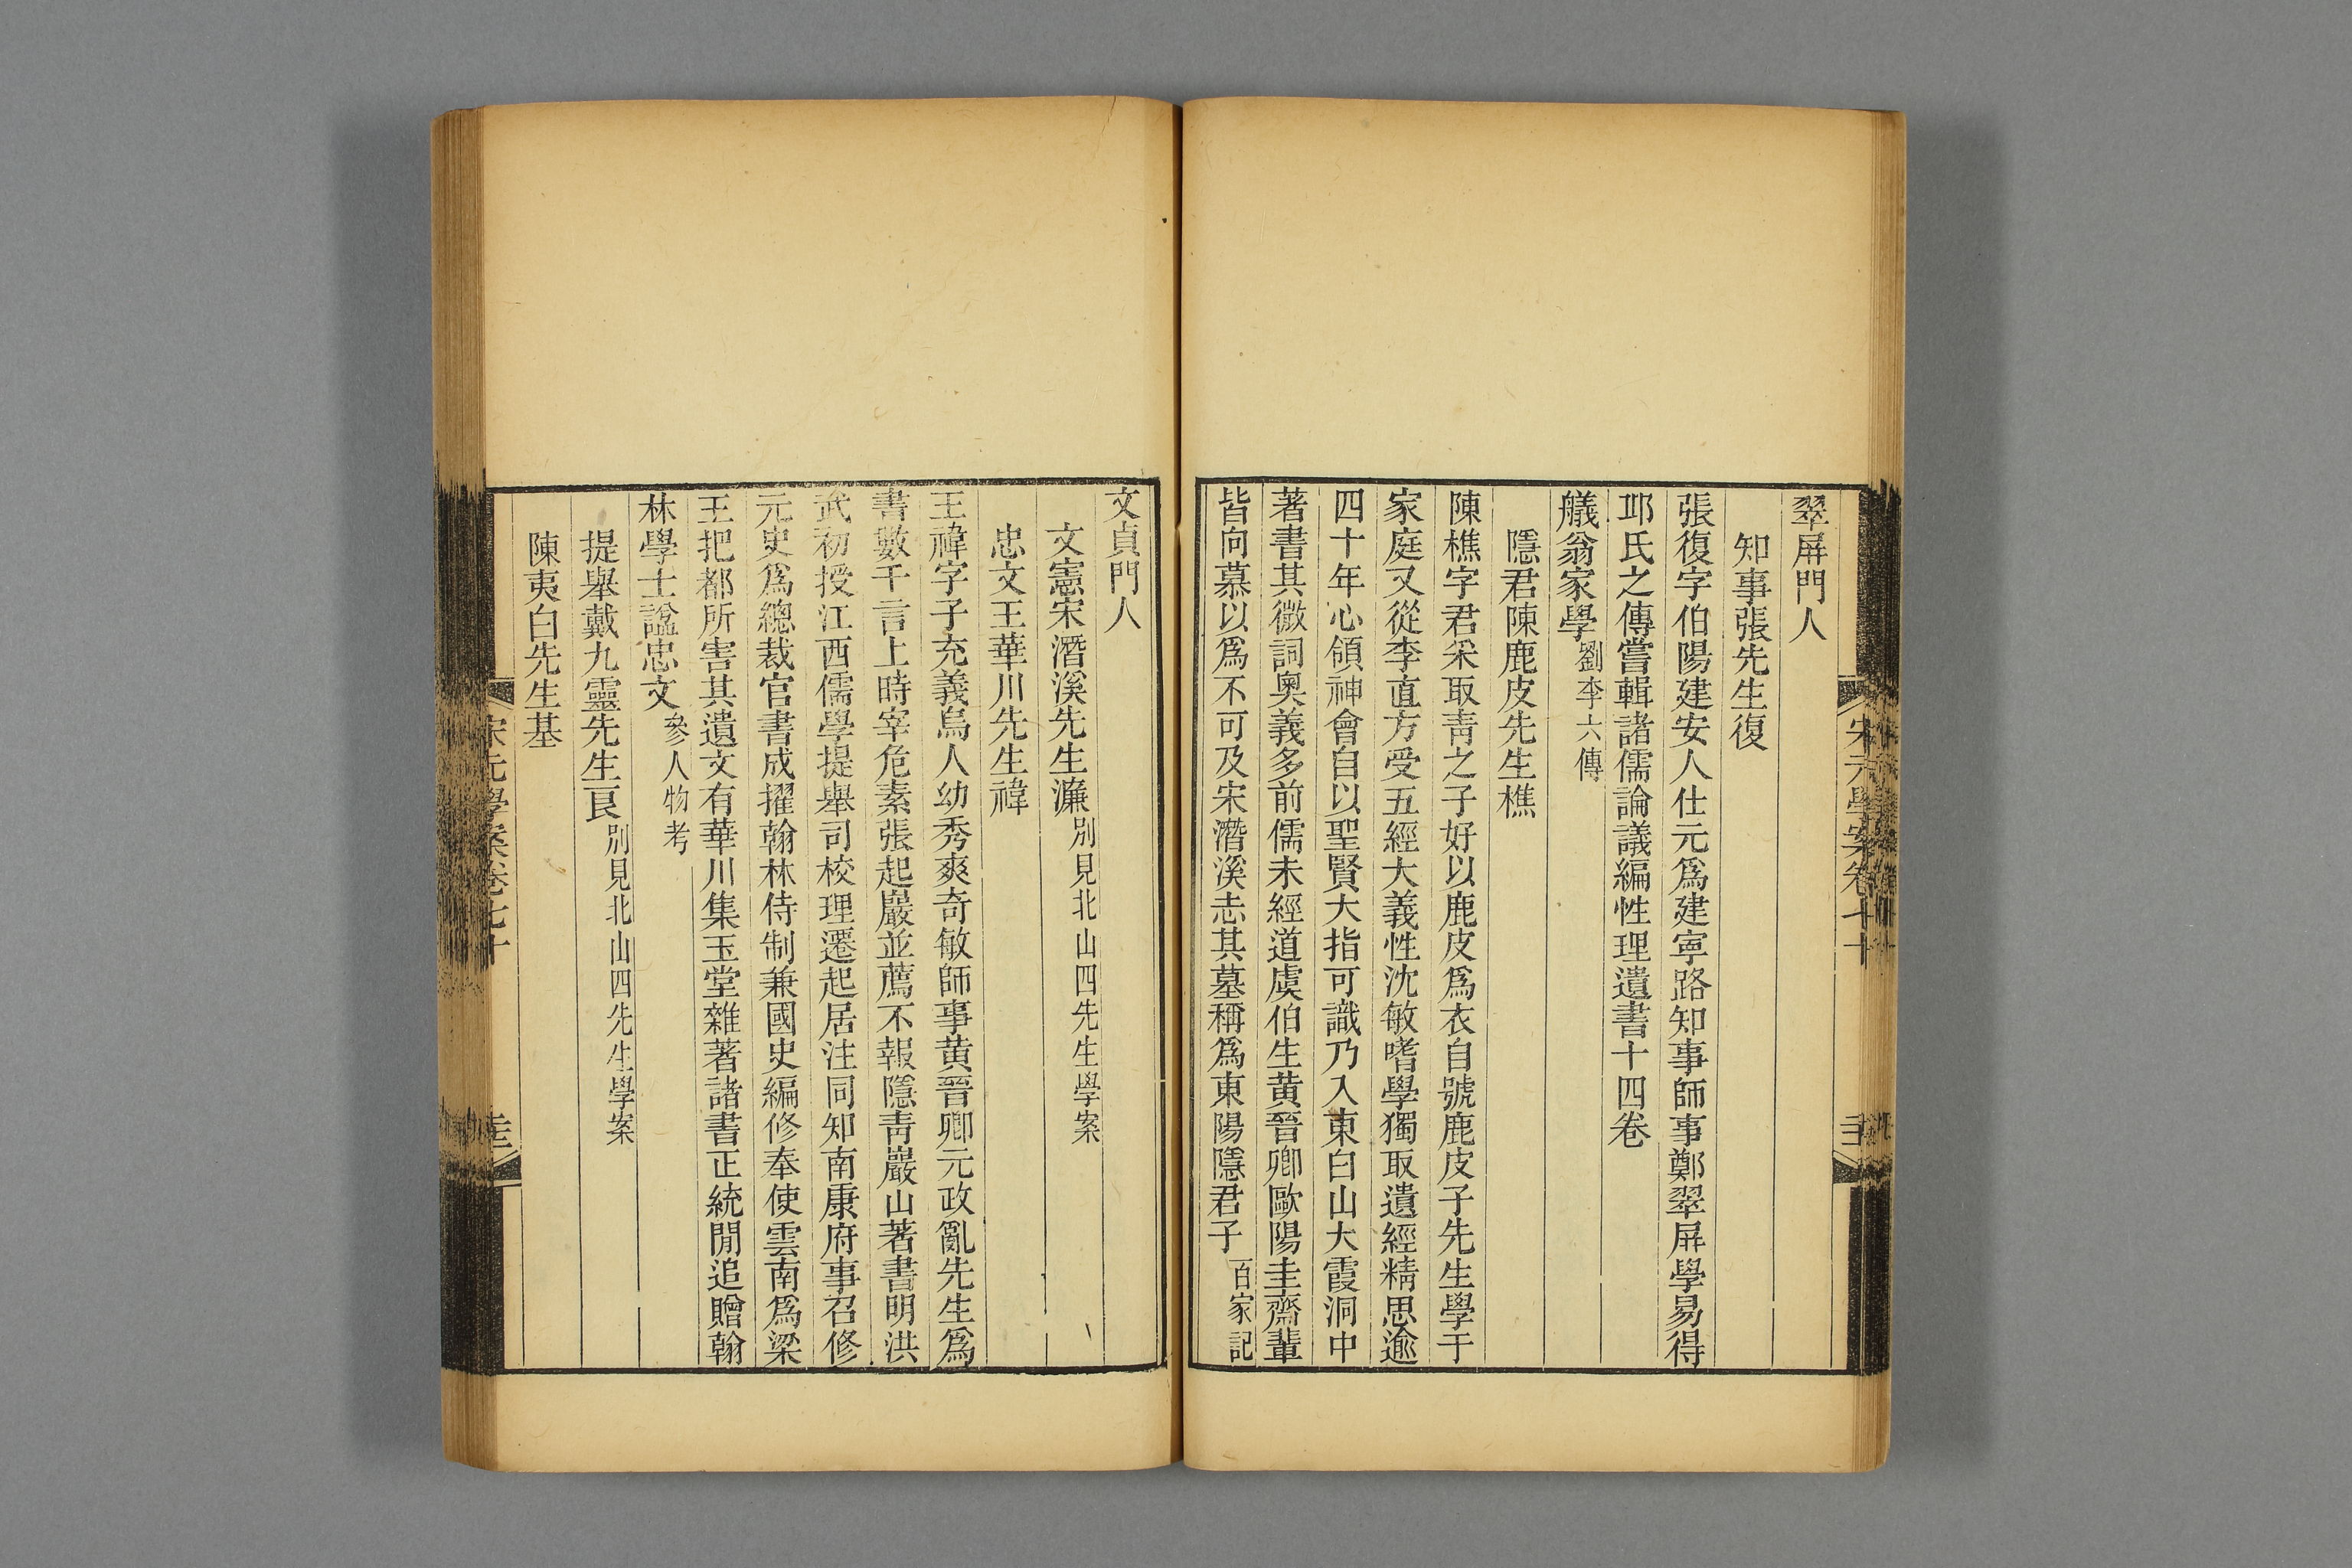 翠屏門人
知事張先生復
張復字伯陽建安人仕元爲建寧路知事師事鄭翠屏學易得
邛氏之傳嘗輯諸儒論議編性理遺書十四卷
艤翁家學劉李六傳
隱君陳鹿皮先生樵
陳樵字君采取靑之子好以鹿皮爲衣自號鹿皮子先生學于
家庭又從李直方受五經大義性沈敏嗜學獨取遺經精思逾
四十年心領神會自以聖賢大指可識乃入東白山大霞洞中
著書其微詞奧義多前儒未經道虞伯生黄晉卿歐陽圭齋輩
皆向慕以爲不可及宋濳溪志其墓稱爲東陽隱君子百家記
文貞門人
文憲宋濳溪先生濂別見北山四先生學案
忠文王華川先生禕
王禕字子充義烏人幼秀爽奇敏師事黄晉卿元政亂先生爲
書數千言上時宰危素張起巖並薦不報隱靑巖山著書明洪
武初授江西儒學提舉司校理遷起居注同知南康府事召修
元史爲總裁官書成擢翰林侍制兼國史編修奉使雲南爲梁
王把都所害其遺文有華川集玉堂雜著諸書正統閒追贈翰
林學士諡忠文參人物考
提舉戴九靈先生良別見北山四先生學案
陳夷白先生基
宋元學案卷七十